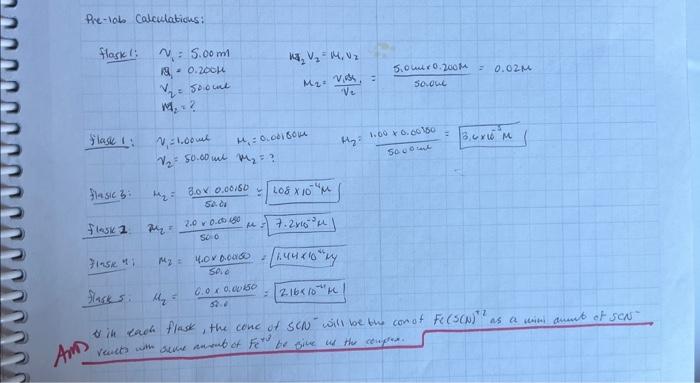 Pre-lab Calculations:
flask 1: V₁ = 5.00 m M₂V₂ = M₁V₂
M₁ = 0.200M M₂ = V₁M₁ / V₂ = 5.0 mL x 0.200M / 50.0mL = 0.02M
V₂ = 50.0 mL
M₂ = ?
flask 1: V₁ = 1.00 mL M₁ = 0.00180M M₂ = 1.00 x 0.00180 / 50.00 mL = 3.6x10⁻⁵ M
V₂ = 50.00 mL M₂ = ?
flask 3: M₂ = 3.0 x 0.00180 / 50.0 = 1.08 x 10⁻⁴M
flask 2 M₂ = 2.0 x 0.00180 / 50.0 M = 7.2x10⁻⁵M
flask 4: M₂ = 4.0 x 0.00180 / 50.0 = 1.44 x 10⁻⁴M
flask 5: M₂ = 6.0 x 0.00180 / 50.0 = 2.16 x 10⁻⁴M
in each flask, the conc of SCN⁻ will be the con of Fe(SCN)⁺² as a mini amunt of SCN⁻
reacts with same amount of Fe⁺³ be give us the complex.